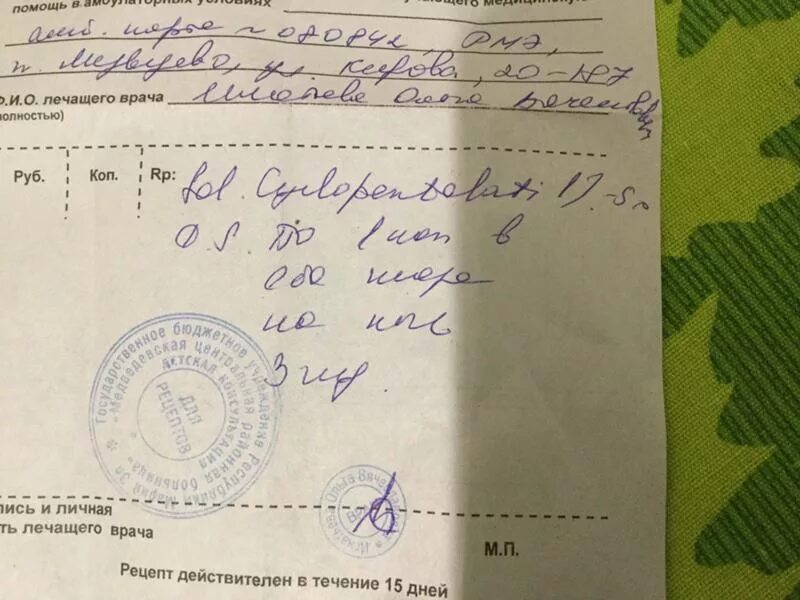 помощь в амбулаторных условиях
амб. карты ~ 080842, РМЭ,
п. Медведево, ул. Кирова, 20-187
Ф.И.О. лечащего врача Ольга
полностью)
Руб. Коп. Rp: Sol. Cyclopentolati 1%-5
D.S. По 1 кап в
оба глаза
на ночь
3 нед.
Государственное бюджетное учреждение Республики Марий Эл
"Медведевская центральная районная больница"
детская консультация
ДЛЯ
РЕЦЕПТОВ
Ольга
пись и личная
ть лечащего врача
М.П.
Рецепт действителен в течение 15 дней